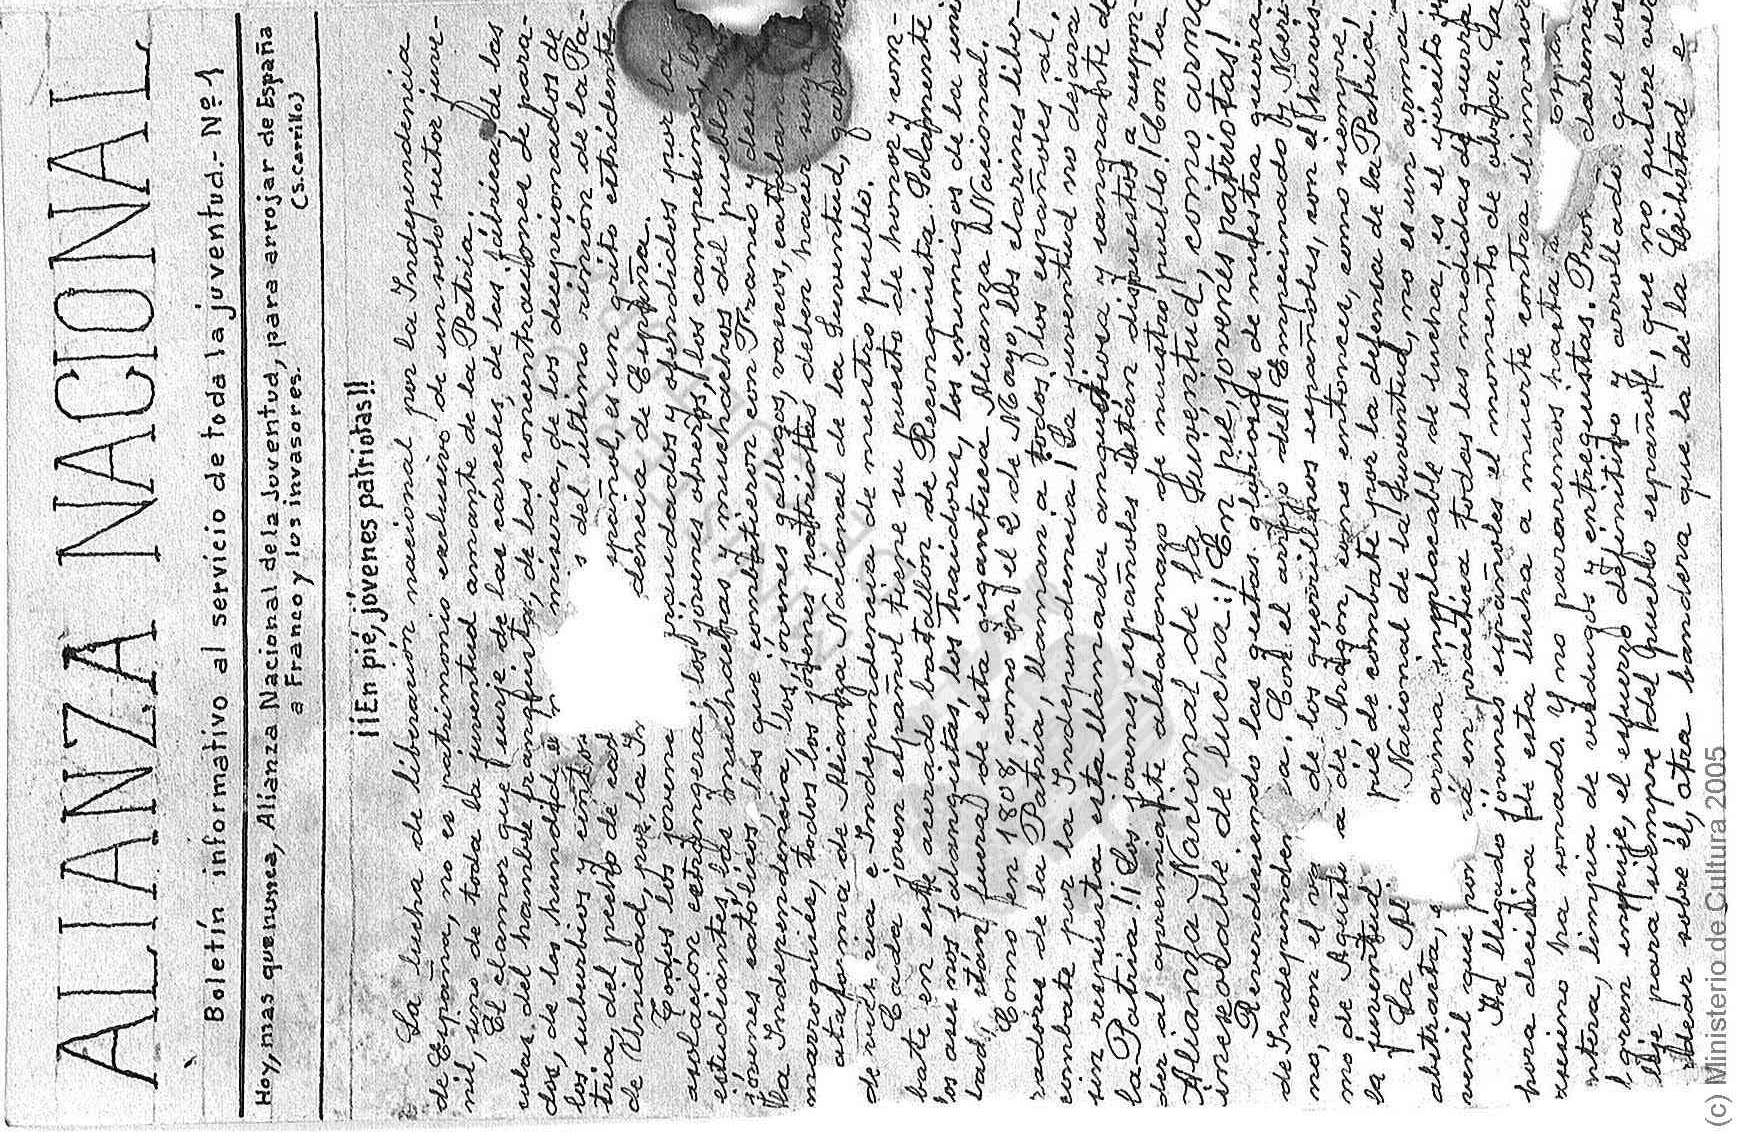 ALIANZA NACIONAL
Boletín informativo al servicio de toda la juventud.- Nº 1
Hoy, mas que nunca, Alianza Nacional de la Juventud, para arrojar de España
a Franco y los invasores. (S. Carrillo)
¡¡En pié, jóvenes patriotas!!
La lucha de liberación nacional por la Independencia
de España, no es patrimonio exclusivo de un solo sector juve-
nil, sino de toda la juventud amante de la Patria.
El clamor que surje de las carceles, de las fábricas, de las
colas del hambre franquista, de las concentraciones de para-
dos, de las hurdes de miseria, de los decepcionados de
los suburbios y del último rincón de la Pa-
tria, del pecho de cad español, es un grito estridente
de Unidad, por la In dencia de España.
Todos los jovene vejados y ofendidos por la
asolación extrangera; los jóvenes obreros, los campesinos, los
estudiantes, las muchachas y muchachos del pueblo, los
jóvenes católicos, los que combatieron con Franco y
la Independencia, los jóvenes gallegos, vascos, catalan
marroquíes, todos los jóvenes patriotas deben hacer suya
ataforma de Alianza Nacional de la Juventud,
de vida e Independencia de nuestro pueblo.
Cada joven español tiene su puesto de honor y com-
bate en este acerado batallón de Reconquista. Solamente
los asesinos falangistas, los traidores, los enemigos de la uni
dad, están fuera de esta gigantesca Alianza Nacional.
Como en 1808, como en el 2 de Mayo, los clarines liber-
tadores de la Patria, llaman a todos los españoles al
combate por la Independencia! La juventud no dejará
sin respuesta esta llamada angustiosa y sangrante de
la Patria!! Los jóvenes españoles están dispuestos a respon-
der al apremiante aldabonazo de nuestro pueblo! Con la
Alianza Nacional de la Juventud, como arma
inexorable de lucha!! En pié, jóvenes patriotas!
Reverdeciendo las gestas gloriosas de nuestra guerra
de Independen ia. Con el arrojo del Empecinado
no, con el va de los guerrilleros españoles, con el herois-
mo de Agusti a de Aragón, como entonces, como siempre,
la juventud pié de combate por la defensa de la Patria.
La Al Nacional de la Juventud, no es un arma
abstracta, e arma implacable de lucha, es el ejército ju
venil que pon rá en práctica todas las medidas de guerra
Ha llegado jóvenes españoles el momento de obrar. La
hora decisiva de esta lucha a muerte contra el invasor
asesino ha sonado. Y no pararemos hasta España
ntera, limpia de verdugos y entreguistas. Pron daremos
l gran empuje, el esfuerzo definitivo y arrollador que los
aleje para siempre del pueblo español, que no quiere ver
ondear sobre él, otra bandera que la de la Libertad e
(c) Ministerio de Cultura 2005